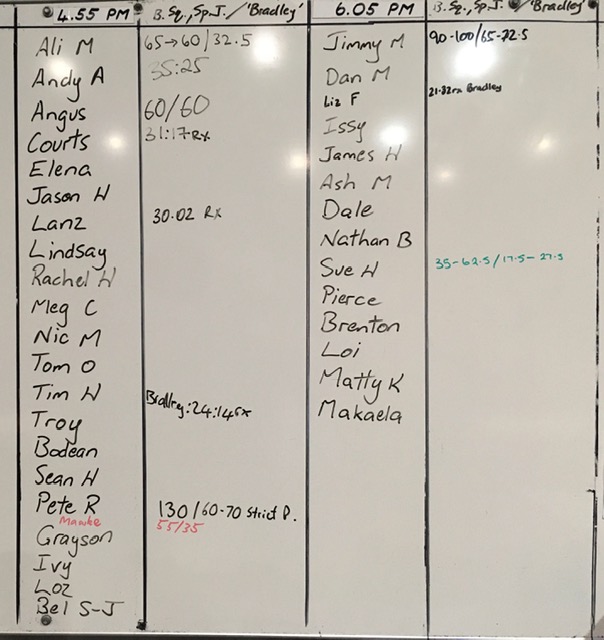 4.55 PM B. Sq., Sp.J./'Bradley'
Ali M 65→60/32.5
35:25
Andy A
Angus 60/60
Courts 31:17 Rx
Elena
Jason H
Lanz 30.02 Rx
Lindsay
Rachel H
Meg C
Nic M
Tom O
Tim H Bradley: 24:14 rx
Troy
Bodean
Sean H
Pete R 130/60-70 Strict P.
55/35
Grayson
Ivy
Loz
Bel S-J
6.05 PM B. Sq., Sp.J./'Bradley'
Jimmy M 90-100/65-72.5
Dan M
Liz F 21.82rx Bradley
Issy
James H
Ash M
Dale
Nathan B
Sue H 35-62.5/17.5-27.5
Pierce
Brenton
Loi
Matty K
Makaela